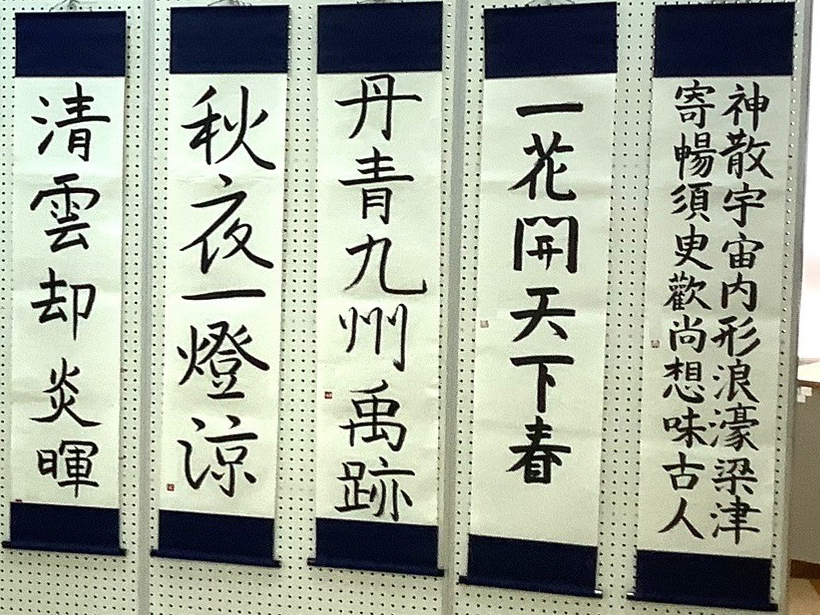 神散宇宙内形浪濠梁津
寄暢須臾歡尚想味古人
一花開天下春
丹青九州禹跡
秋夜一燈涼
清雲却炎暉